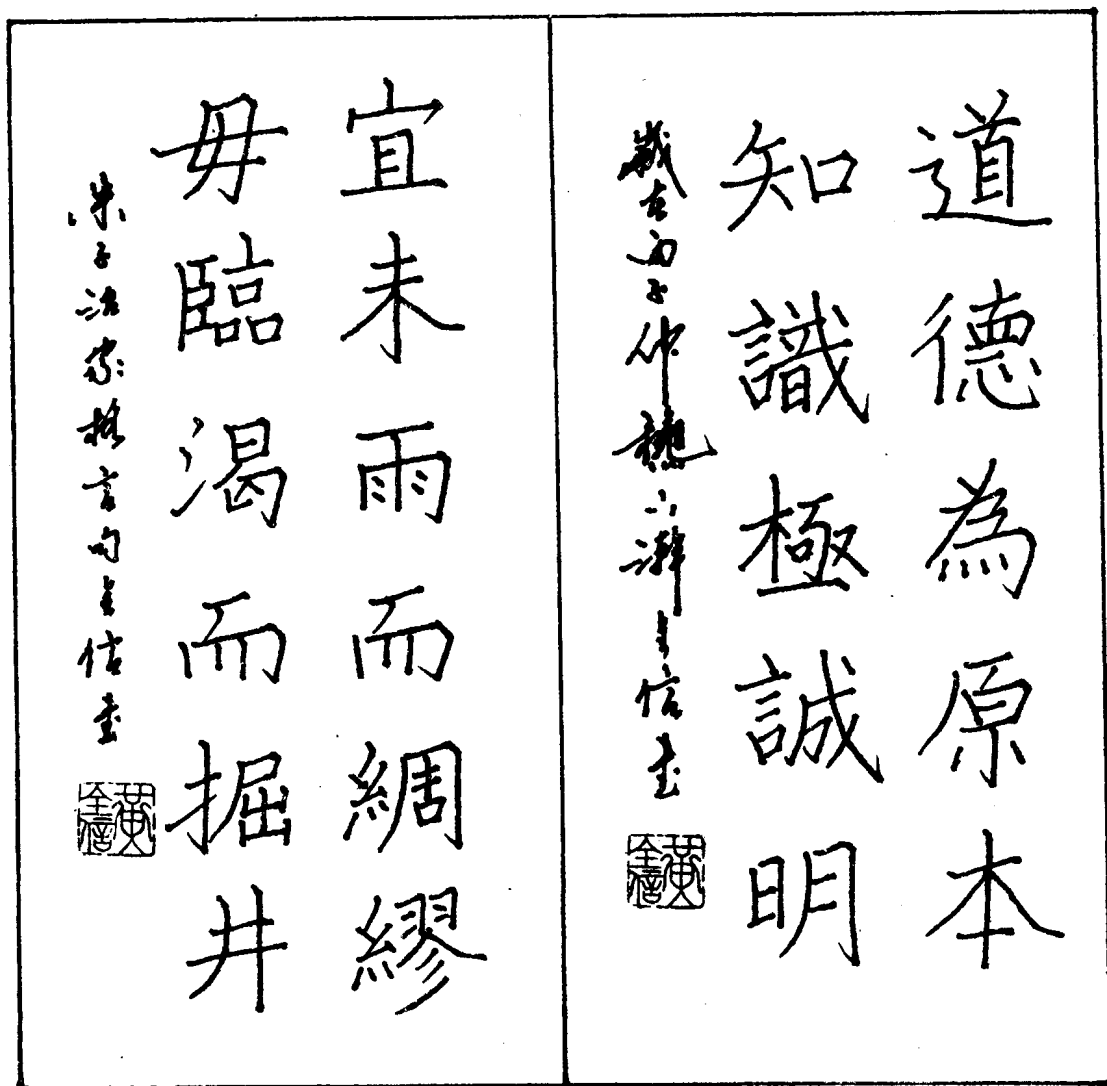 道德為原本
知識極誠明
歲在丙子仲穐六瀞全信書
黃全信
宜未雨而綢繆
毋臨渴而掘井
朱子治家格言句全信書
黃全信